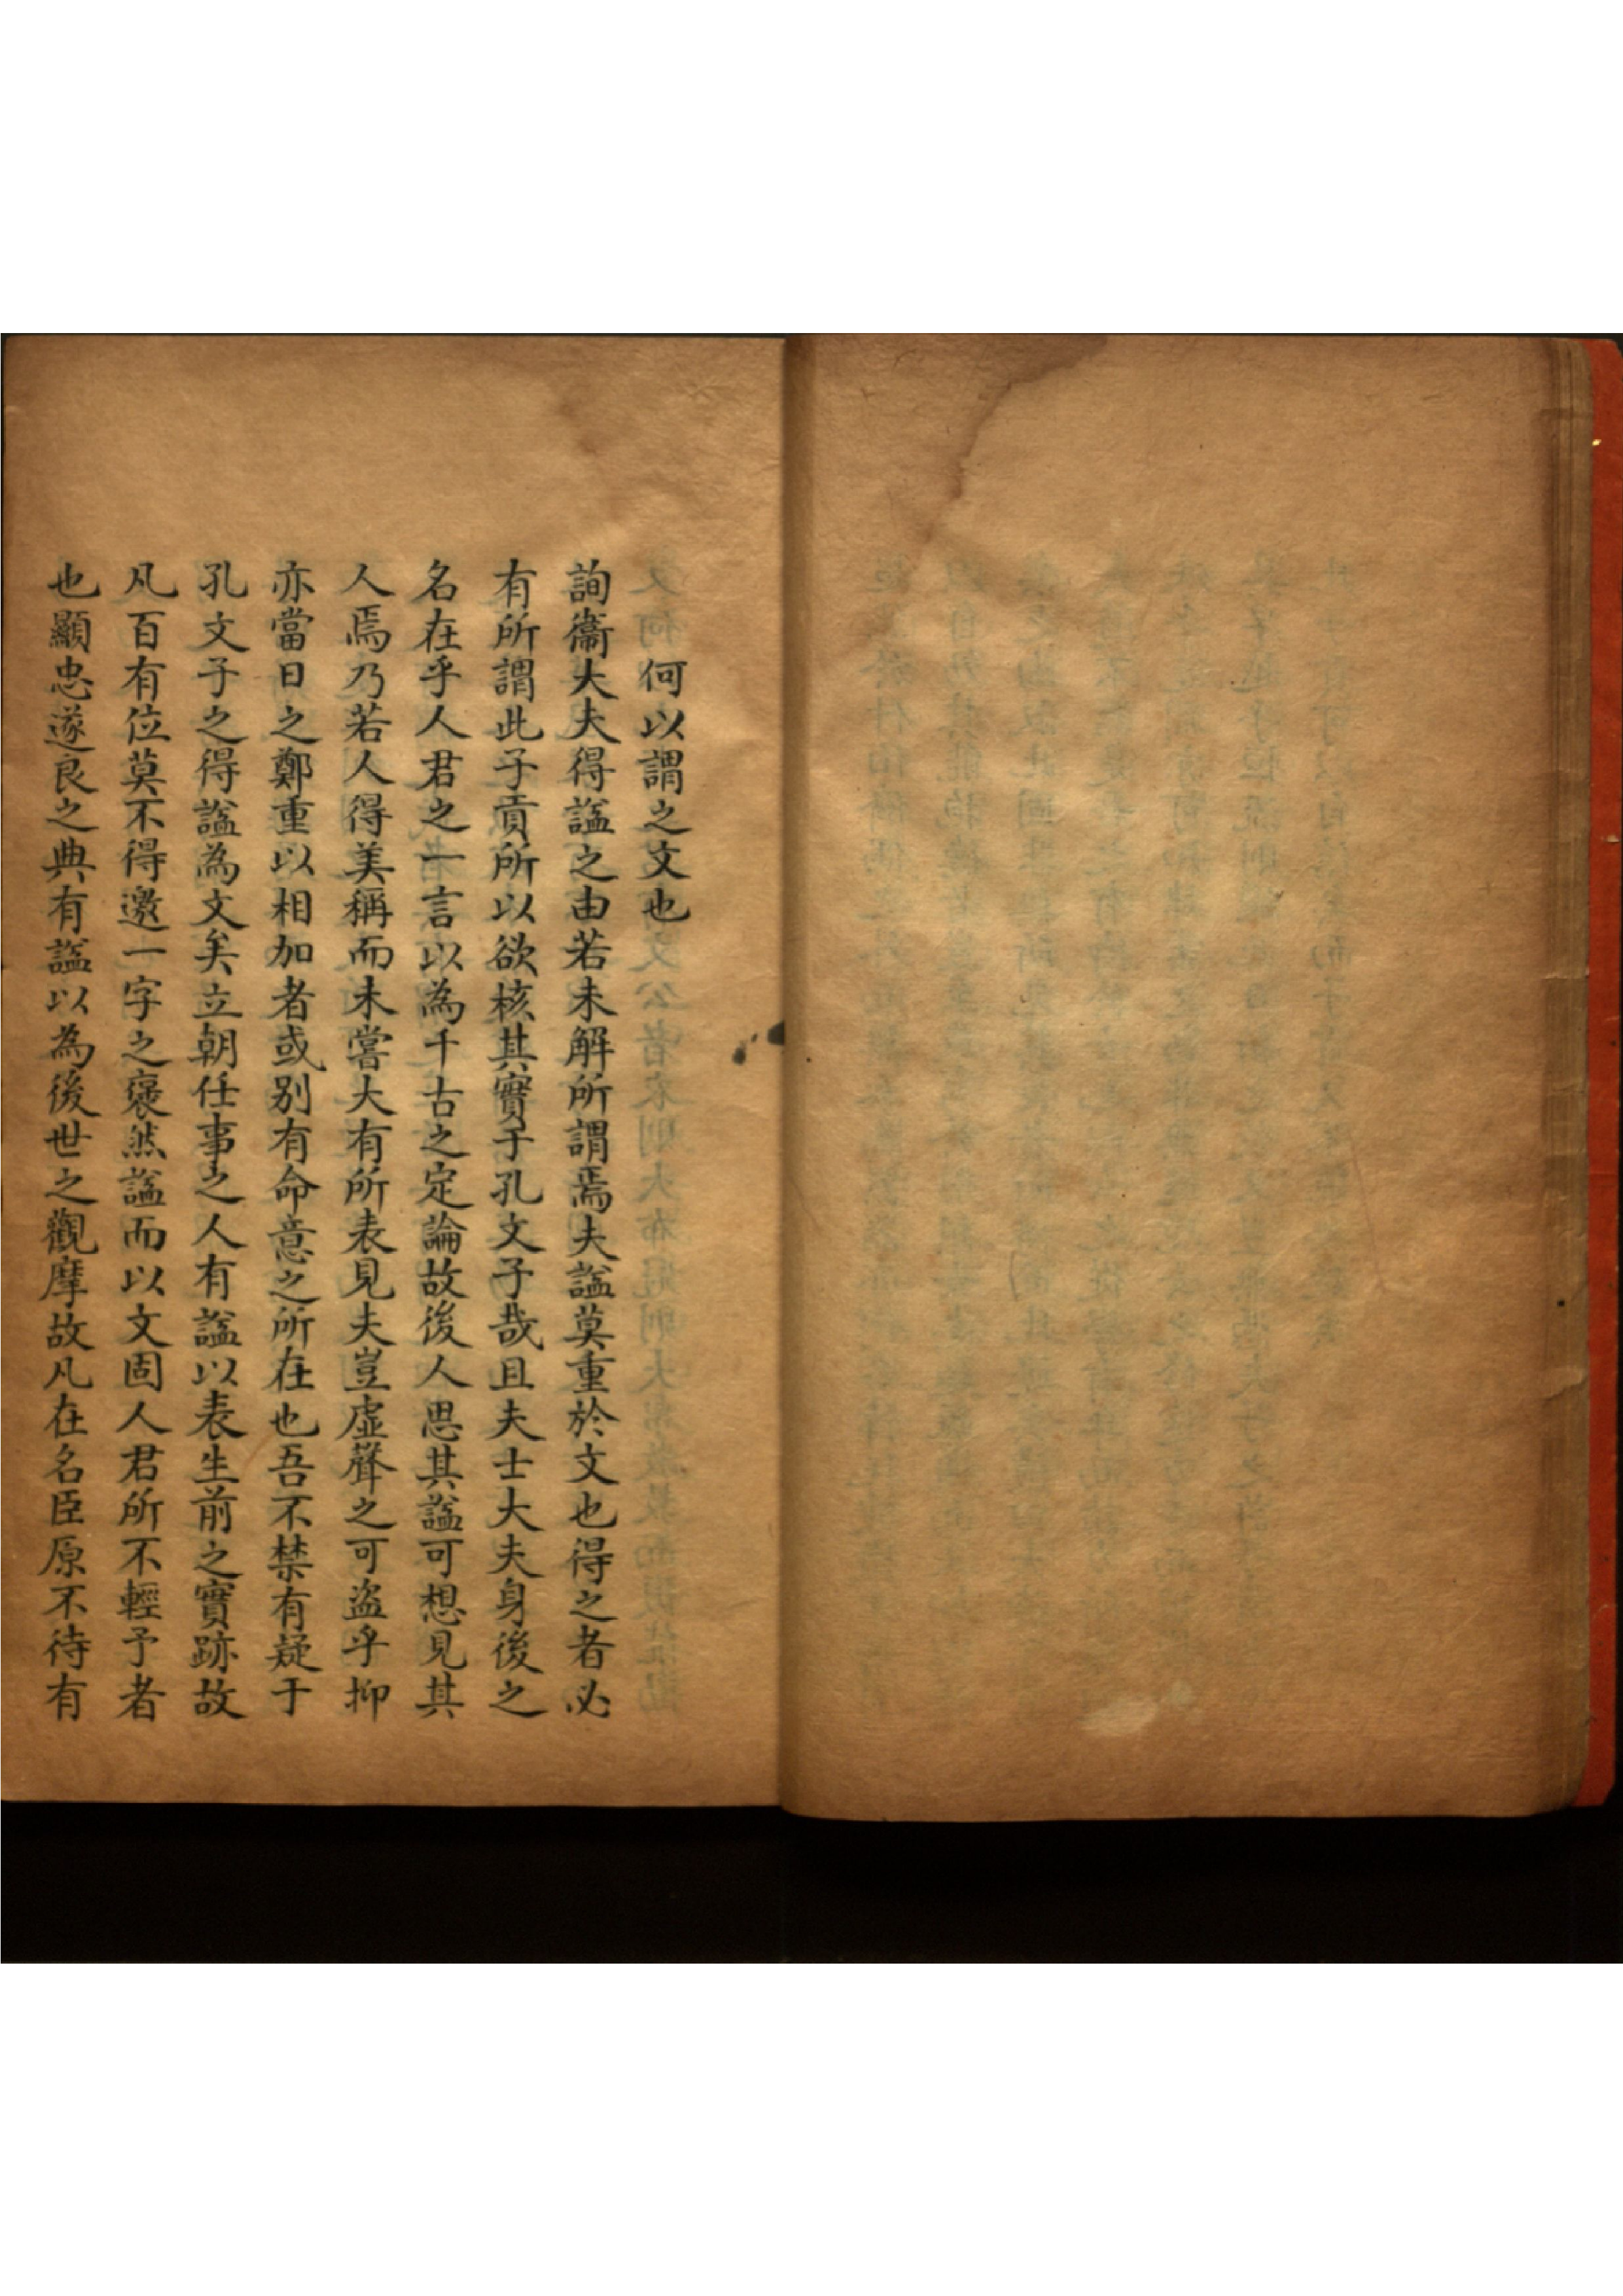 何以謂之文也
詢衞大夫得諡之由若未解所謂焉夫諡莫重於文也得之者必
有所謂此子貢所以欲核其實于孔文子哉且夫士大夫身後之
名在乎人君之一言以為千古之定論故後人思其諡可想見其
人焉乃若人得美稱而未嘗大有所表見夫豈虛聲之可盜乎抑
亦當日之鄭重以相加者或别有命意之所在也吾不禁有疑于
孔文子之得諡為文矣立朝任事之人有諡以表生前之實跡故
凡百有位莫不得邀一字之褒然諡而以文固人君所不輕予者
也顯忠遂良之典有諡以為後世之觀摩故凡在名臣原不待有